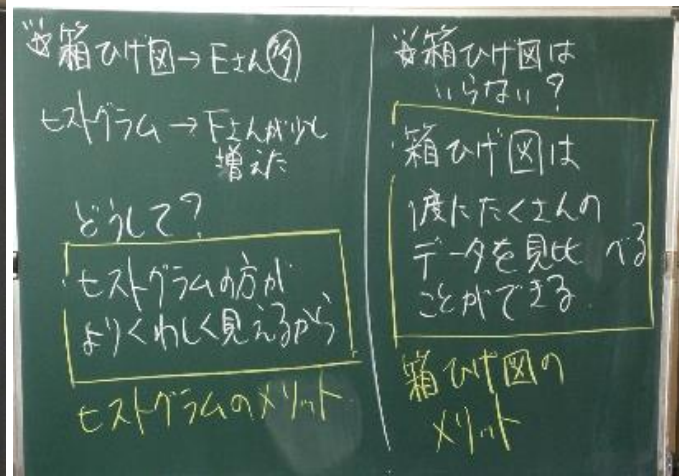 ☆箱ひげ図→Eさん多
ヒストグラム→Fさんが少し
増えた
どうして?
ヒストグラムの方が
よりくわしく見えるから
ヒストグラムのメリット
☆箱ひげ図は
いらない?
箱ひげ図は
1度にたくさんの
データを見比べる
ことができる
箱ひげ図の
メリット